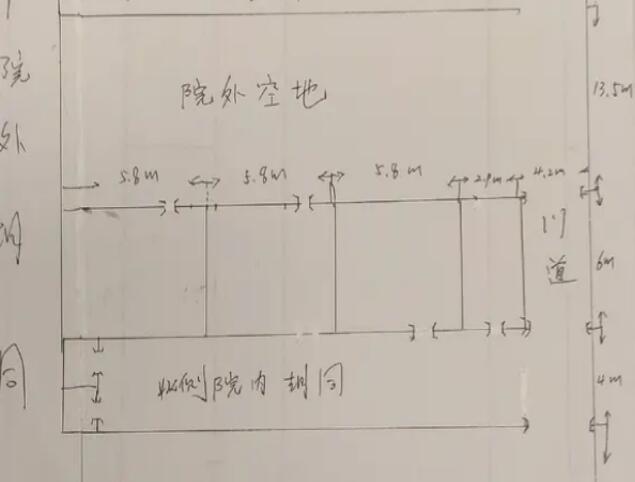 院外空地
13.5m
5.8m
5.8m
5.8m
2.9m
4.2m
门道
6m
院内胡同
4m
院
外
同